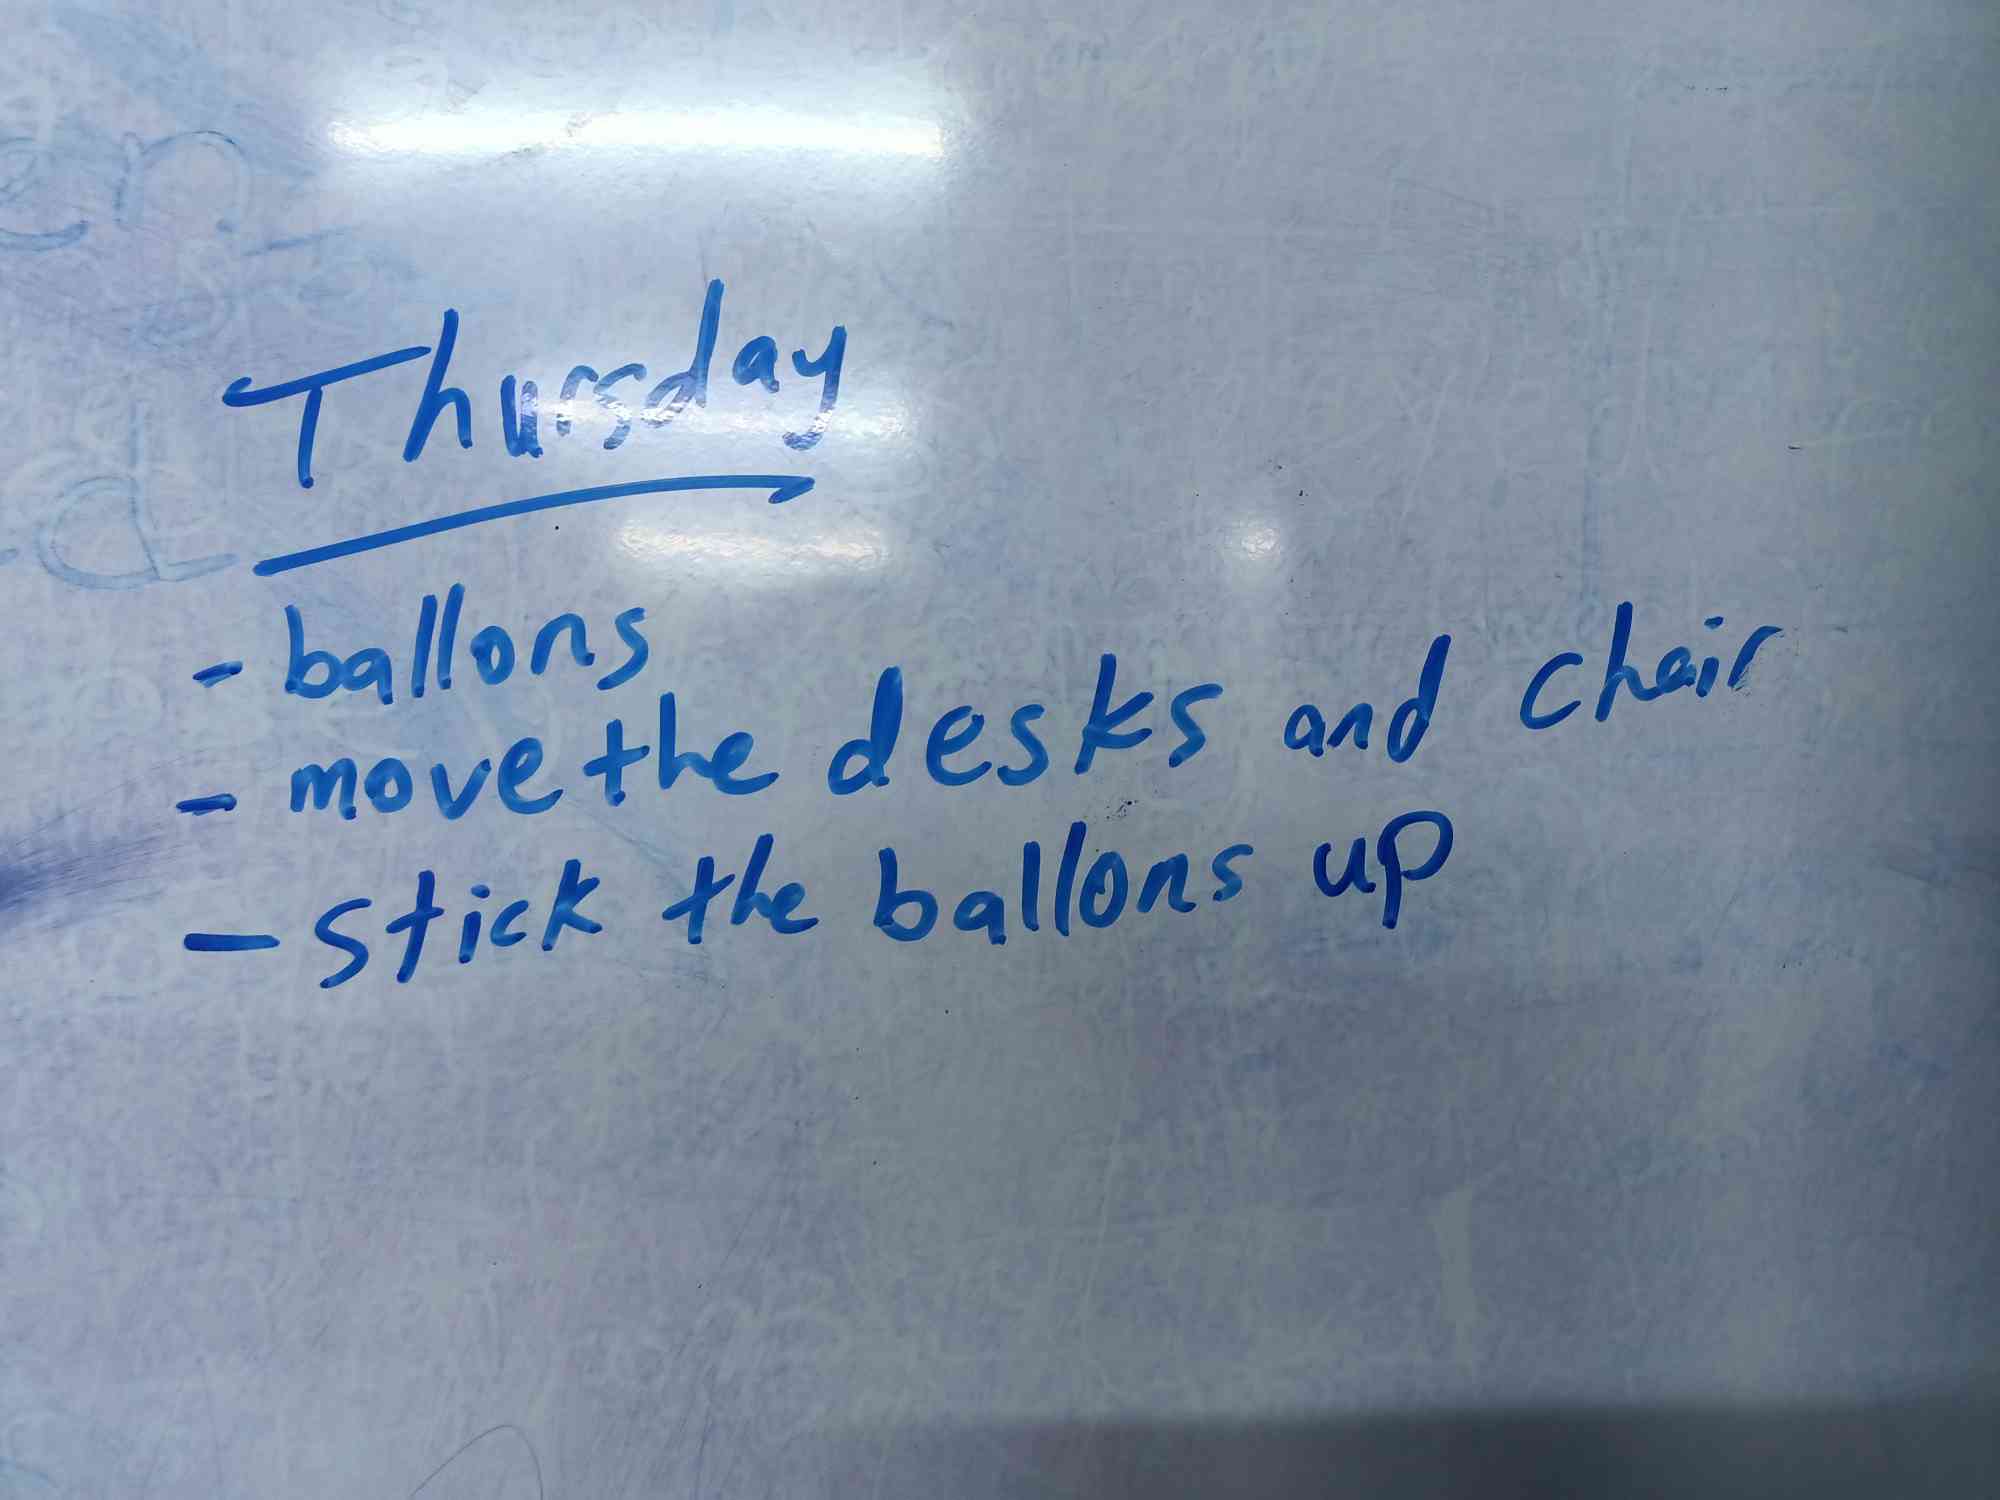 Thursday
- ballons
- move the desks and chair
- stick the ballons up